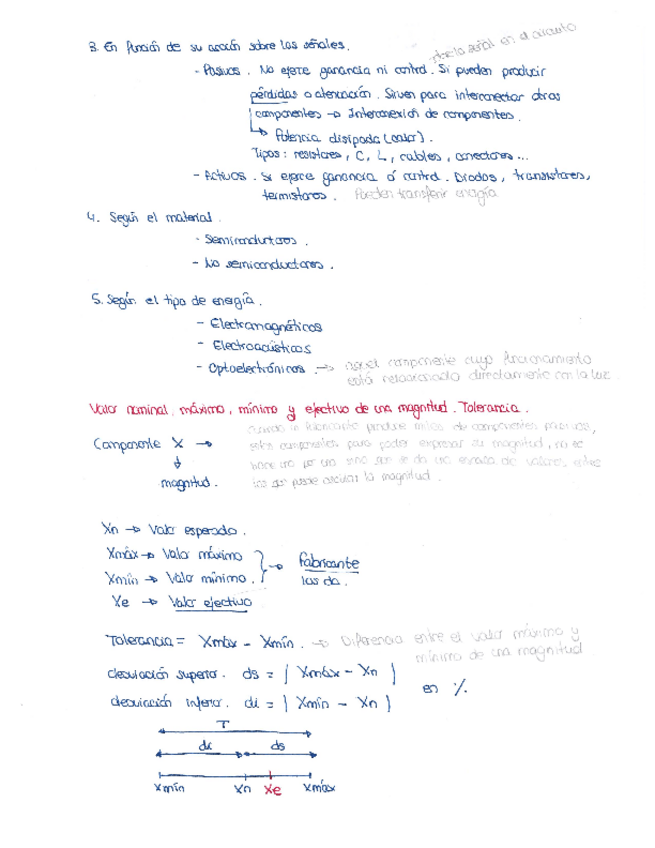 3. En función de su acción sobre las señales.
sobre la señal en el circuito
- Pasivos. No ejerce ganancia ni control. Si pueden producir
pérdidas o atenuación. Sirven para interconectar otros
componentes → Interconexión de componentes.
↳ Potencia disipada (calor).
Tipos: resistores, C, L, cables, conectores...
- Activos. Si ejerce ganancia ó control. Diodos, transistores,
termistores. Pueden transferir energía
4. Según el material.
- Semiconductores.
- No semiconductores.
5. Según el tipo de energía.
- Electromagnéticos
- Electroacústicos
- Optoelectrónicos. → aquel componente cuyo funcionamiento
está relacionado directamente con la luz.
Valor nominal, máximo, mínimo y efectivo de una magnitud. Tolerancia.
cuando un fabricante produce miles de componentes pasivos,
Componente X → estos componentes, para poder expresar su magnitud, no se
hace uno por uno sino que se da una escala de valores entre
↓
magnitud. los que puede oscilar la magnitud.
Xn → Valor esperado.
Xmáx → Valor máximo
Xmín → Valor mínimo. } → fabricante
los da.
Xe → Valor efectivo
Tolerancia = Xmáx - Xmín. → Diferencia entre el valor máximo y
mínimo de una magnitud
desviación superior. ds = | Xmáx - Xn |
desviación inferior. di = | Xmín - Xn |
en %
T
di ds
Xmín Xn Xe Xmáx